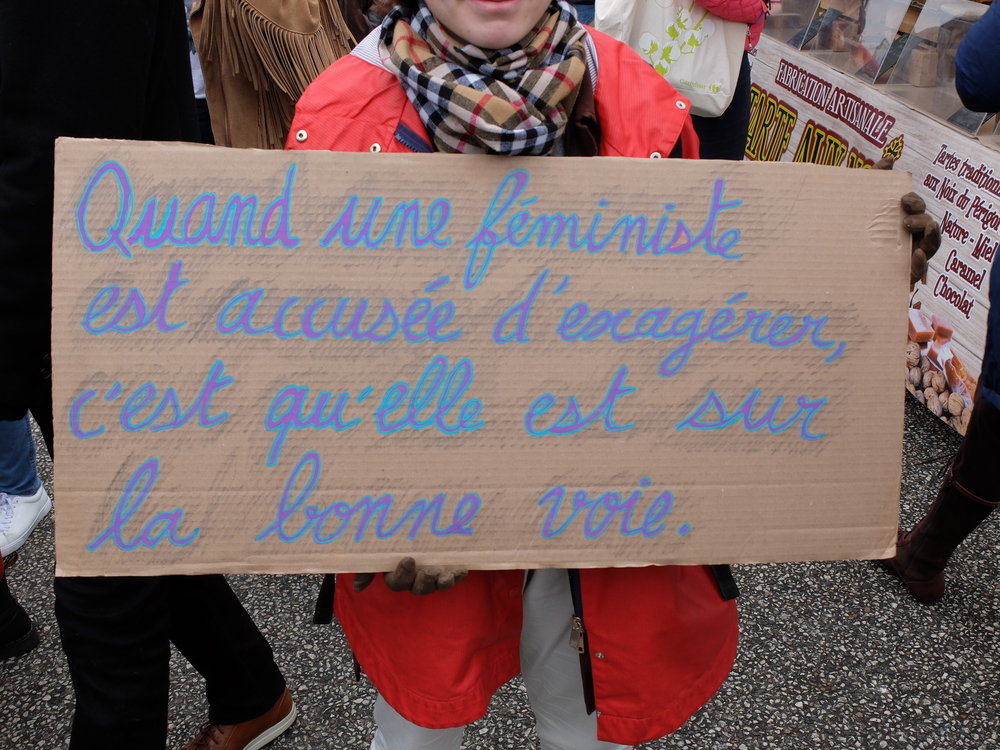 Quand une féministe
est accusée d'exagérer,
c'est qu'elle est sur
la bonne voie.
FABRICATION ARTISANALE
TARTE AUX
Tartes tradition
aux Noix du Périgor
Nature - Miel
Caramel
Chocolat